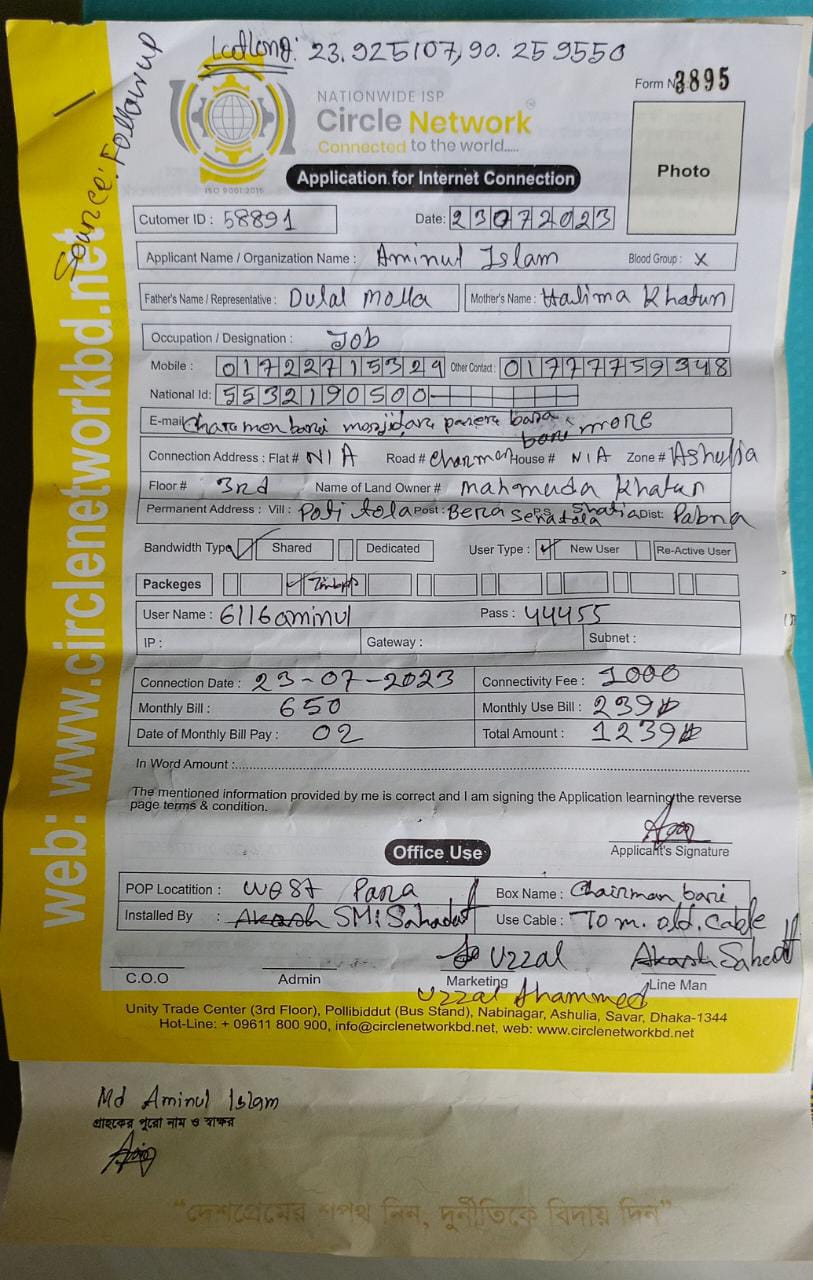 Latlong: 23.925107,90.259550
Source: Followup
Form No 3895
NATIONWIDE ISP
Circle Network
Connected to the world.....
ISO 9001:2015
Photo
Application for Internet Connection
Cutomer ID : 58891 Date: 23072023
Applicant Name / Organization Name : Aminul Islam Blood Group : X
Father's Name / Representative : Dulal Molla Mother's Name : Halima Khatun
Occupation / Designation : Job
Mobile : 01722715329 Other Contact : 01777759348
National Id: 5532190500
E-mail more
Connection Address : Flat # N/A Road # Charman House # N/A Zone # Ashulia
bari
Floor # 3rd Name of Land Owner # Mahmuda Khatun
Permanent Address : Vill : Post : Bera P.S Dist: Pabna
Bandwidth Type Shared Dedicated User Type : New User Re-Active User
Packeges
User Name : 6116aminul Pass : 44455
IP : Gateway : Subnet :
Connection Date : 23-07-2023 Connectivity Fee : 1000
Monthly Bill : 650 Monthly Use Bill : 239
Date of Monthly Bill Pay : 02 Total Amount : 1239
In Word Amount :
The mentioned information provided by me is correct and I am signing the Application learning the reverse
page terms & condition.
Applicant's Signature
Office Use
POP Locatition : West Para Box Name : Chairman bari
Installed By : Akash SMi Sahadat Use Cable : 70 m. old. Cable
Uzzal Akash
C.O.O Admin Marketing Line Man
Uzzal Ahammed
Unity Trade Center (3rd Floor), Pollibiddut (Bus Stand), Nabinagar, Ashulia, Savar, Dhaka-1344
Hot-Line: + 09611 800 900, info@circlenetworkbd.net, web: www.circlenetworkbd.net
web: www.circlenetworkbd.net
Md Aminul Islam
গ্রাহকের পুরো নাম ও স্বাক্ষর
“দেশপ্রেমের শপথ নিন, দুর্নীতিকে বিদায় দিন”